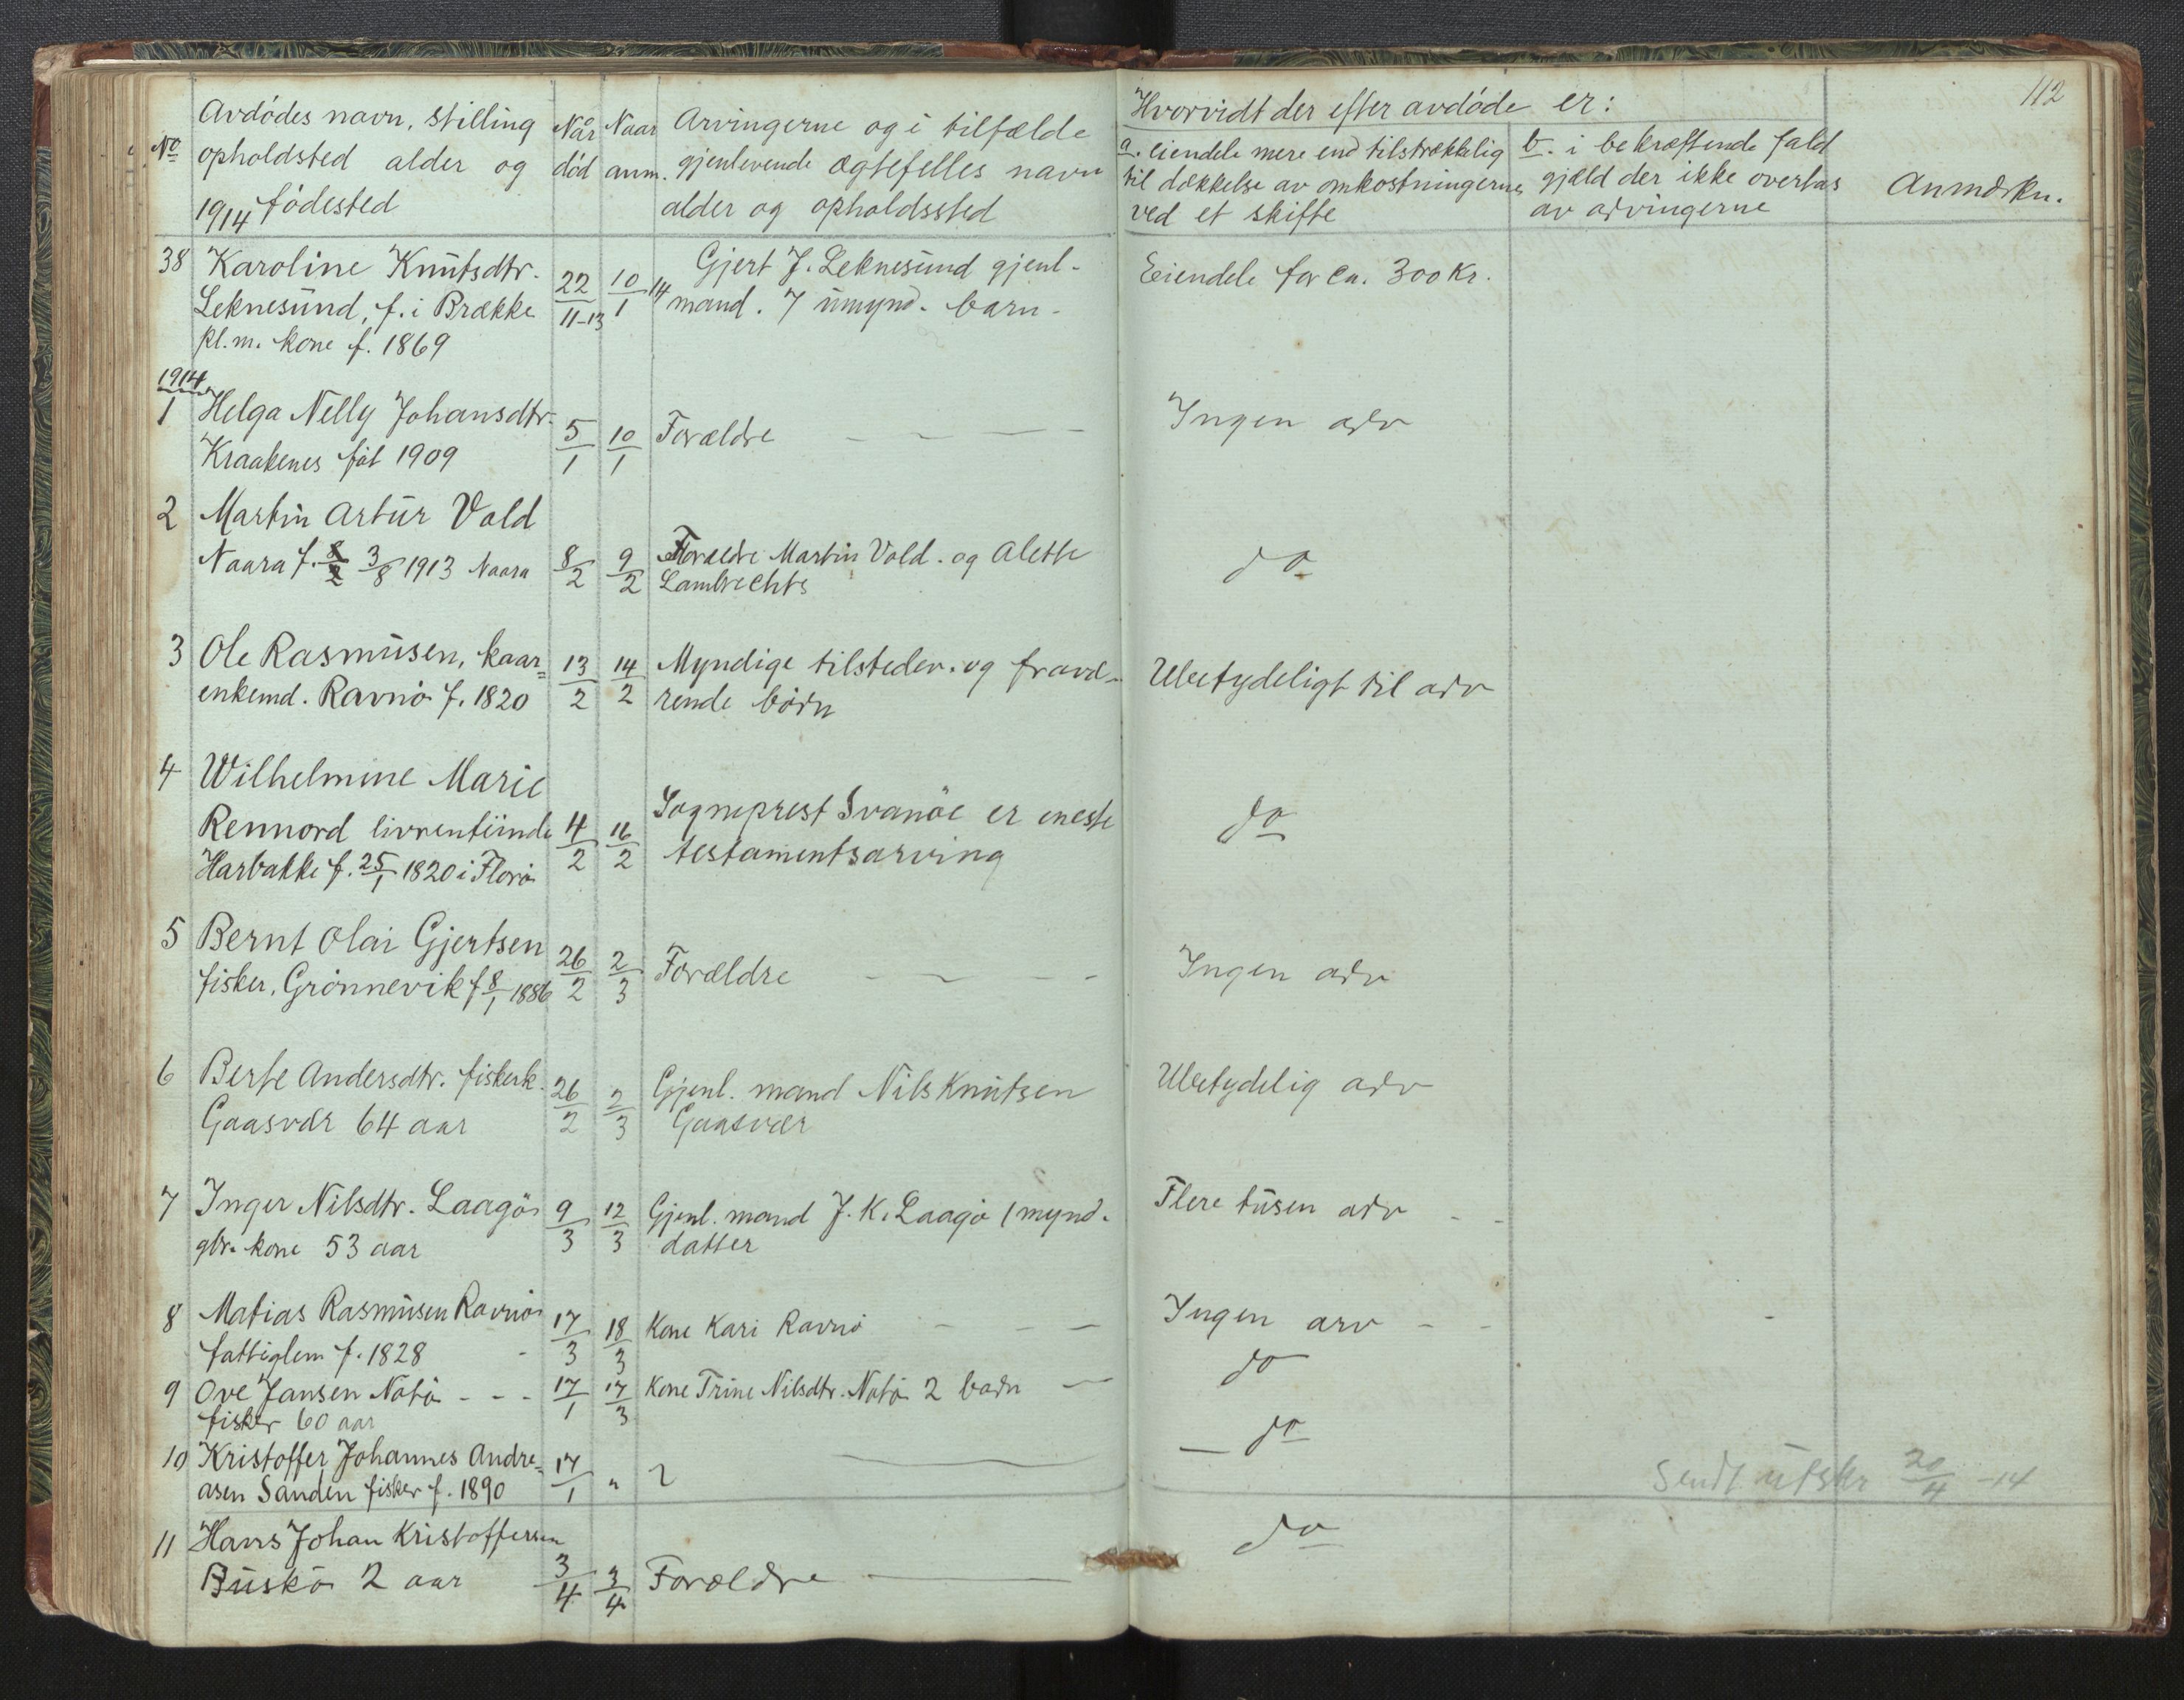 112
Avdödes navn, stilling
opholdsted alder og
1914 födested
No
Når
död
Naar
anm.
Arvingerne og i tilfælde
gjenlevende ægtefelles navn
alder og opholdssted
Hvorvidt der efter avdöde er:
a. eiendele mere end tilstrækkelig
til dækkelse av omkostningerne
ved et skifte
b. i bekræftende fald
gjæld der ikke overtas
av arvingerne
Anmærkn.
38 Karoline Knutsdtr. 22/11-13 10/1 14 Gjert J. Leknesund gjenl- Eiendele for ca. 300 Kr.
Leknesund, f. i Brække mand. 7 umynd. barn-
pl.m. kone f. 1869
1914
1 Helga Nelly Johansdtr. 5/1 10/1 Forældre - - - - Ingen arv
Kraakenes föt 1909
2 Martin Artur Vold
Naara f. 8/2 3/8 1913 Naara 8/2 9/2 Forældre Martin Vold. og Alette do
Lambrechts
3 Ole Rasmusen, kaar= 13/2 14/2 Myndige tilstedev. og fravæ- Ubetydeligt til arv
enkemd. Ravnö f. 1820 rende börn
4 Wilhelmine Marie
Rennord livrentiinde 4/2 16/2 Sogneprest Svanöe er eneste do
Harbakke f. 25/1 1820 i Florö testamentsarving
5 Bernt Olai Gjertsen 26/2 2/3 Forældre - - - - Ingen arv
fisker, Grönnevik f 8/1 1886
6 Berte Andersdtr. fiskerk. 26/2 2/3 Gjenl. mand Nils Knutsen Ubetydelig arv
Gaasvær 64 aar Gaasvær
7 Inger Nilsdtr. Laagö 9/3 12/3 Gjenl. mand J. K. Laagö 1 mynd. Flere tusen arv - -
gbr. kone 53 aar datter
8 Matias Rasmusen Ravnö 17/3 18/3 Kone Kari Ravnö - - - Ingen arv - - -
fattiglem f. 1828 -
9 Ove Jansen Notö - - - 17/1 17/3 Kone Trine Nilsdtr. Notö 2 barn - do
fisker 60 aar
10 Kristoffer Johannes Andre= 17/1 " ? - do
asen Sanden fisker f. 1890
Sendt utskr 20/4 -14
11 Hans Johan Kristoffersen do
Buskö 2 aar 3/4 3/4 Forældre -